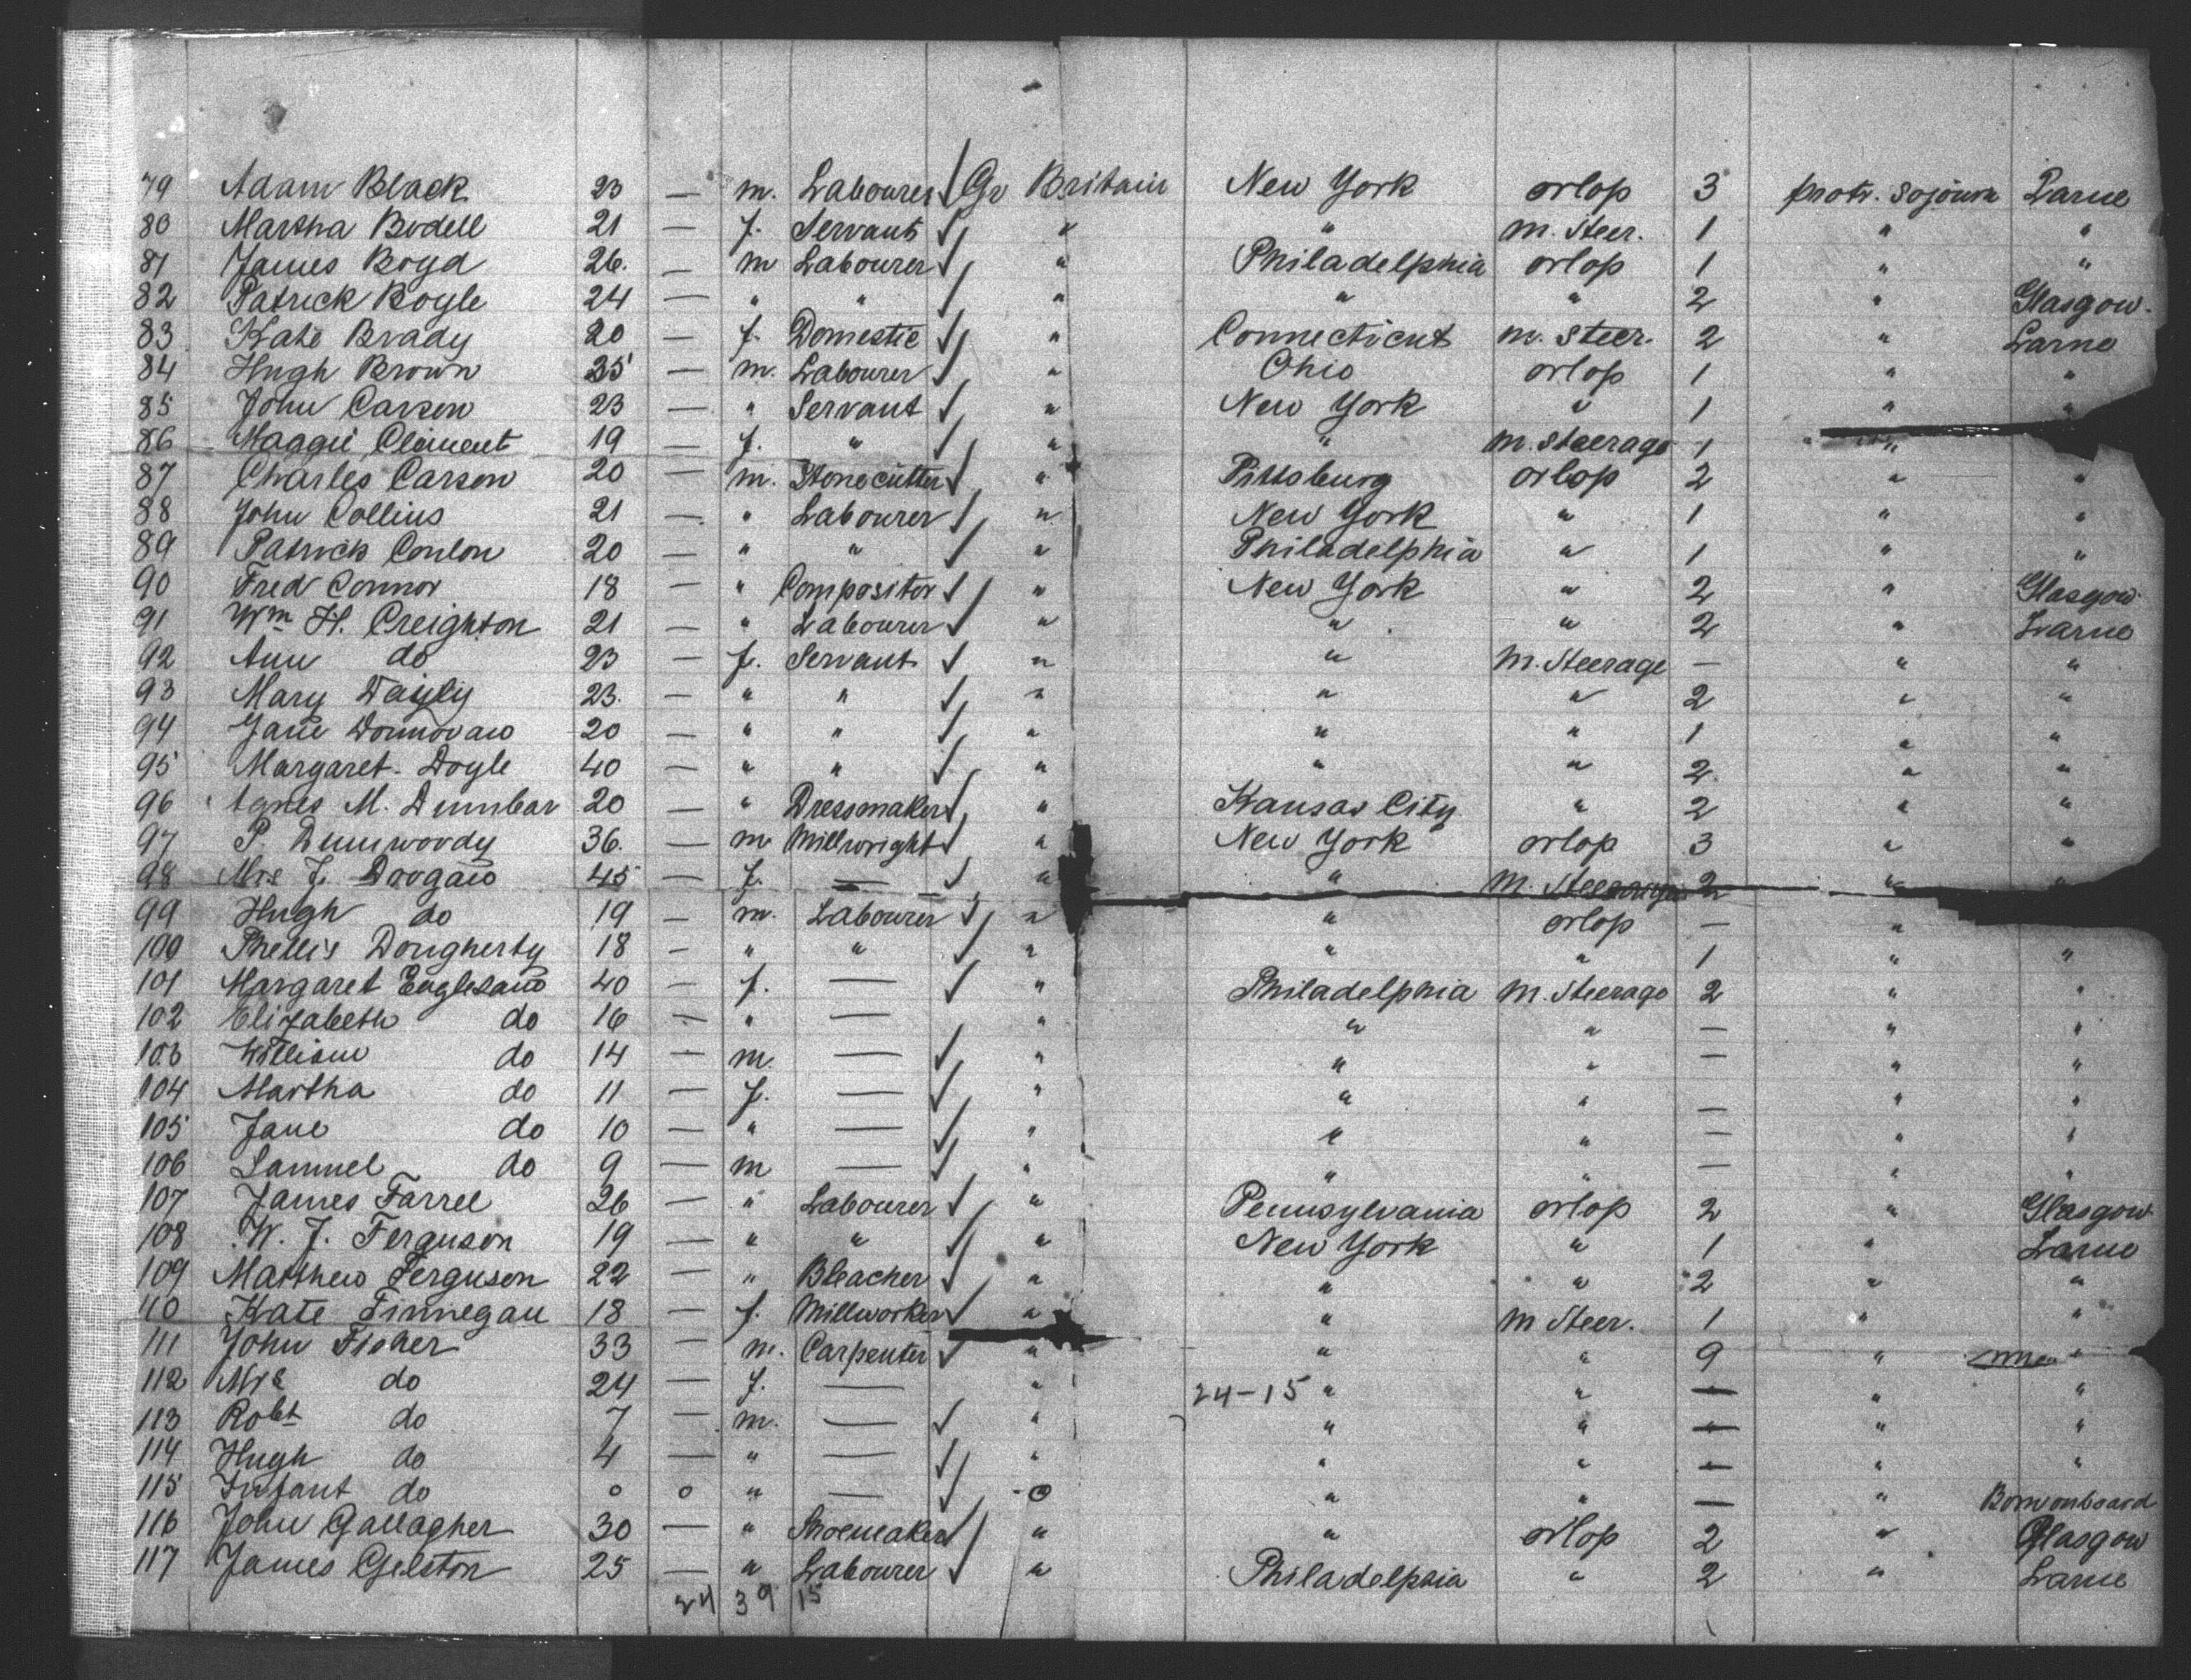 79 Adam Black 23 — m. Labourer Gr Britain New York orlop 3 protr. sojourn Larne
80 Martha Bodell 21 — f. Servant " " m. Steer. 1 " "
81 James Boyd 26. — m Labourer " Philadelphia orlop 1 " "
82 Patrick Boyle 24 — " " " " " 2 " Glasgow.
83 Kate Brady 20 — f. Domestic " Connecticut m. steer. 2 " Larne
84 Hugh Brown 35 — m. Labourer " Ohio orlop 1 " "
85 John Carson 23 — " Servant " New York " 1 " "
86 Maggie Clement 19 — f. " " " m. steerage 1 "
87 Charles Carson 20 — m. Stonecutter " Pittsburg orlop 2 " "
88 John Collins 21 — " Labourer " New York " 1 " "
89 Patrick Conlon 20 — " " " Philadelphia " 1 " "
90 Fred Connor 18 — " Compositor " New York " 2 " Glasgow.
91 Wm H. Creighton 21 — " Labourer " " " 2 " Larne
92 Ann do 23 — f. Servant " " M. Steerage — " "
93 Mary Dayly 23. — " " " " " 2 " "
94 Jane Donnovan 20 — " " " " " 1 " "
95 Margaret Doyle 40 — " " " " " 2. " "
96 Agnes M. Dunnbar 20 — " Dressmaker " Kansas City " 2 " "
97 P. Dunnwoody 36. — m Millwright " New York orlop 3 " "
98 Mrs J. Drogan 45 — f. — " " M. Steerage 2 " "
99 Hugh do 19 — m. Labourer " " orlop — "
100 Phellis Dougherty 18 — " " " " " 1 " "
101 Margaret Engleson 40 — f. — " Philadelphia M. Steerage 2 " "
102 Elizabeth do 16 — " — " " " — " "
103 William do 14 — m. — " " " — " "
104 Martha do 11 — f. — " " " — " "
105 Jane do 10 — " — " " " — " "
106 Samuel do 9 — m — " " " — " "
107 James Farrel 26 — " Labourer " Pennsylvania orlop 2 " Glasgow
108 W. J. Ferguson 19 — " " " New York " 1 " Larne
109 Matthew Ferguson 22 — " Bleacher " " " 2 " "
110 Kate Finnegan 18 — f. Millworker " " m Steer. 1 " "
111 John Fisher 33 — m. Carpenter " " " 9 " "
112 Mrs do 24 — f. — " 24-15 " " — " "
113 Robt do 7 — m. — " " " — " "
114 Hugh do 4 — " — " " " — " "
115 Infant do 0 0 " — 0 " " — " Born onboard
116 John Gallagher 30 — " Shoemaker " " orlop 2 " Glasgow
117 James Gelston 25 — " Labourer " Philadelphia " 2 " Larne
24 39 15